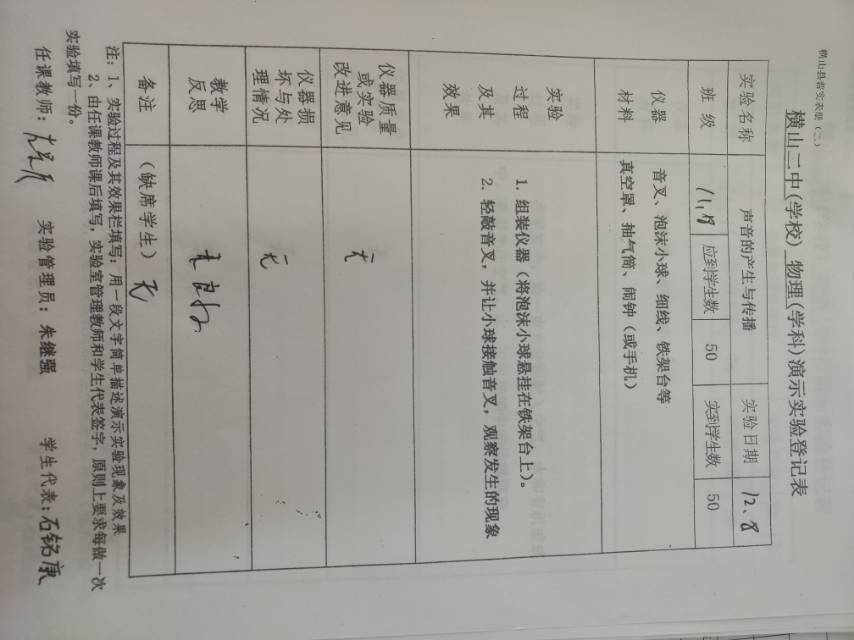 横山县教实表册（二）
横山二中(学校) 物理(学科)演示实验登记表
实验名称 声音的产生与传播 实验日期 12.8
班级 应到学生数 50 实到学生数 50
仪器材料
音叉、泡沫小球、细线、铁架台等
真空罩、抽气筒、闹钟（或手机）
实验过程及其效果
1. 组装仪器（将泡沫小球悬挂在铁架台上）。
2. 轻敲音叉，并让小球接触音叉，观察发生的现象
仪器质量或实验改进意见 无
仪器损坏与处理情况 无
教学反思
备注 （缺席学生） 无
注：1、实验过程及其效果栏填写：用一段文字简单描述演示实验现象及效果
2、由任课教师课后填写，实验室管理教师和学生代表签字，原则上要求每做一次
实验填写一份。
任课教师： 实验管理员：朱继强 学生代表：石铭康